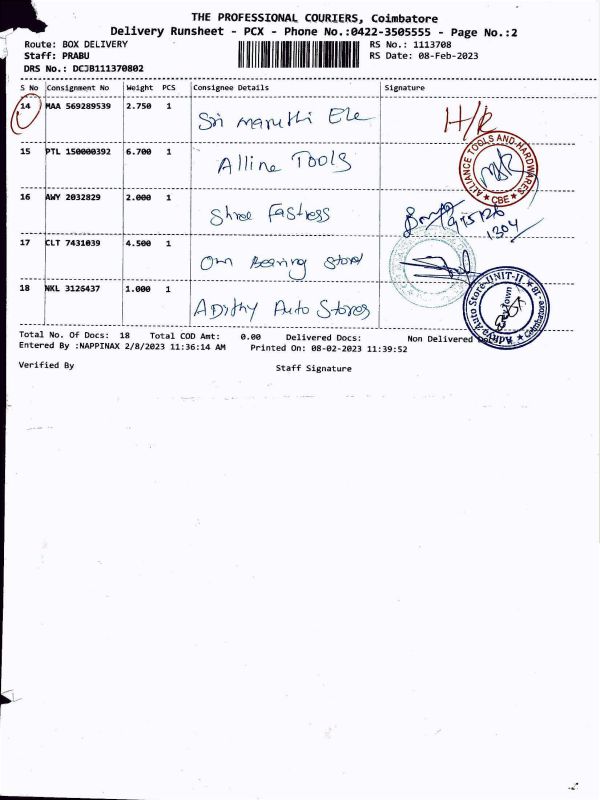 THE PROFESSIONAL COURIERS, Coimbatore
Delivery Runsheet - PCX - Phone No.:0422-3505555 - Page No.:2
Route: BOX DELIVERY RS No.: 1113708
Staff: PRABU RS Date: 08-Feb-2023
DRS No.: DCJB111370802
S No Consignment No Weight PCS Consignee Details Signature
14 MAA 569289539 2.750 1 Sri Maruthi Ele H/R
15 PTL 150000392 6.700 1 Alline Tools
ALLIANCE TOOLS AND HARDWARES
CBE
16 AWY 2032829 2.000 1 Shree Fastress
1304
17 CLT 7431039 4.500 1 Om Bearing Stord
18 NKL 3126437 1.000 1 Adithy Auto Stores
Adithya Auto Store UNIT-II
Coimbatore-18
Total No. Of Docs: 18 Total COD Amt: 0.00 Delivered Docs: Non Delivered
Entered By :NAPPINAX 2/8/2023 11:36:14 AM Printed On: 08-02-2023 11:39:52
Verified By Staff Signature